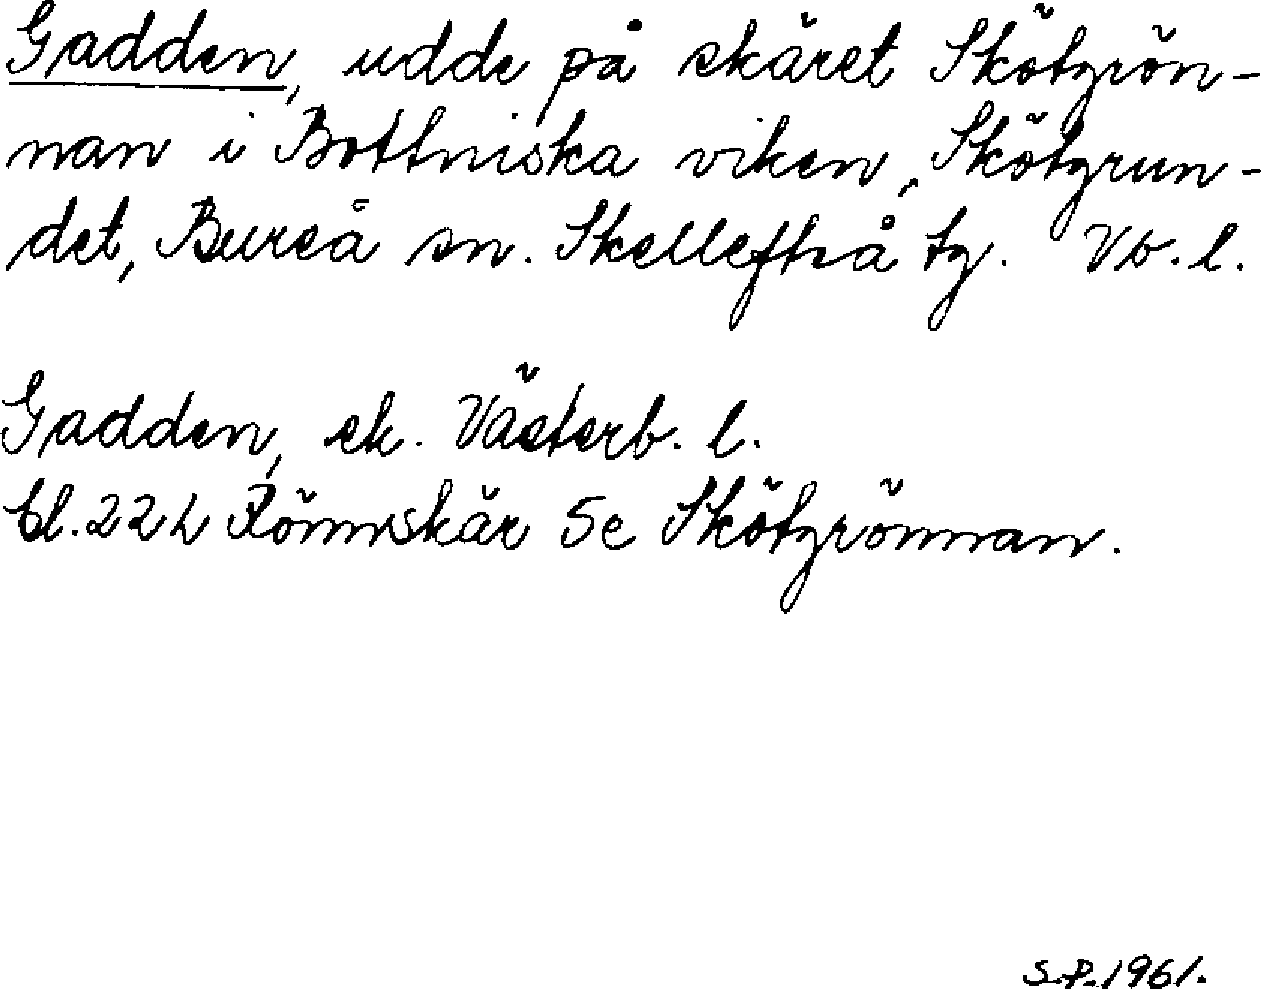 Gadden, udde på skäret Skötgrön-
nan i Bottniska viken, Skötgrun-
det, Bureå sn. Skellefteå tg. Vb. l.
Gadden, ek. Västerb. l.
Bl. 22 L Rönnskär 5e Skötgrönnan.
S.P. 1961.